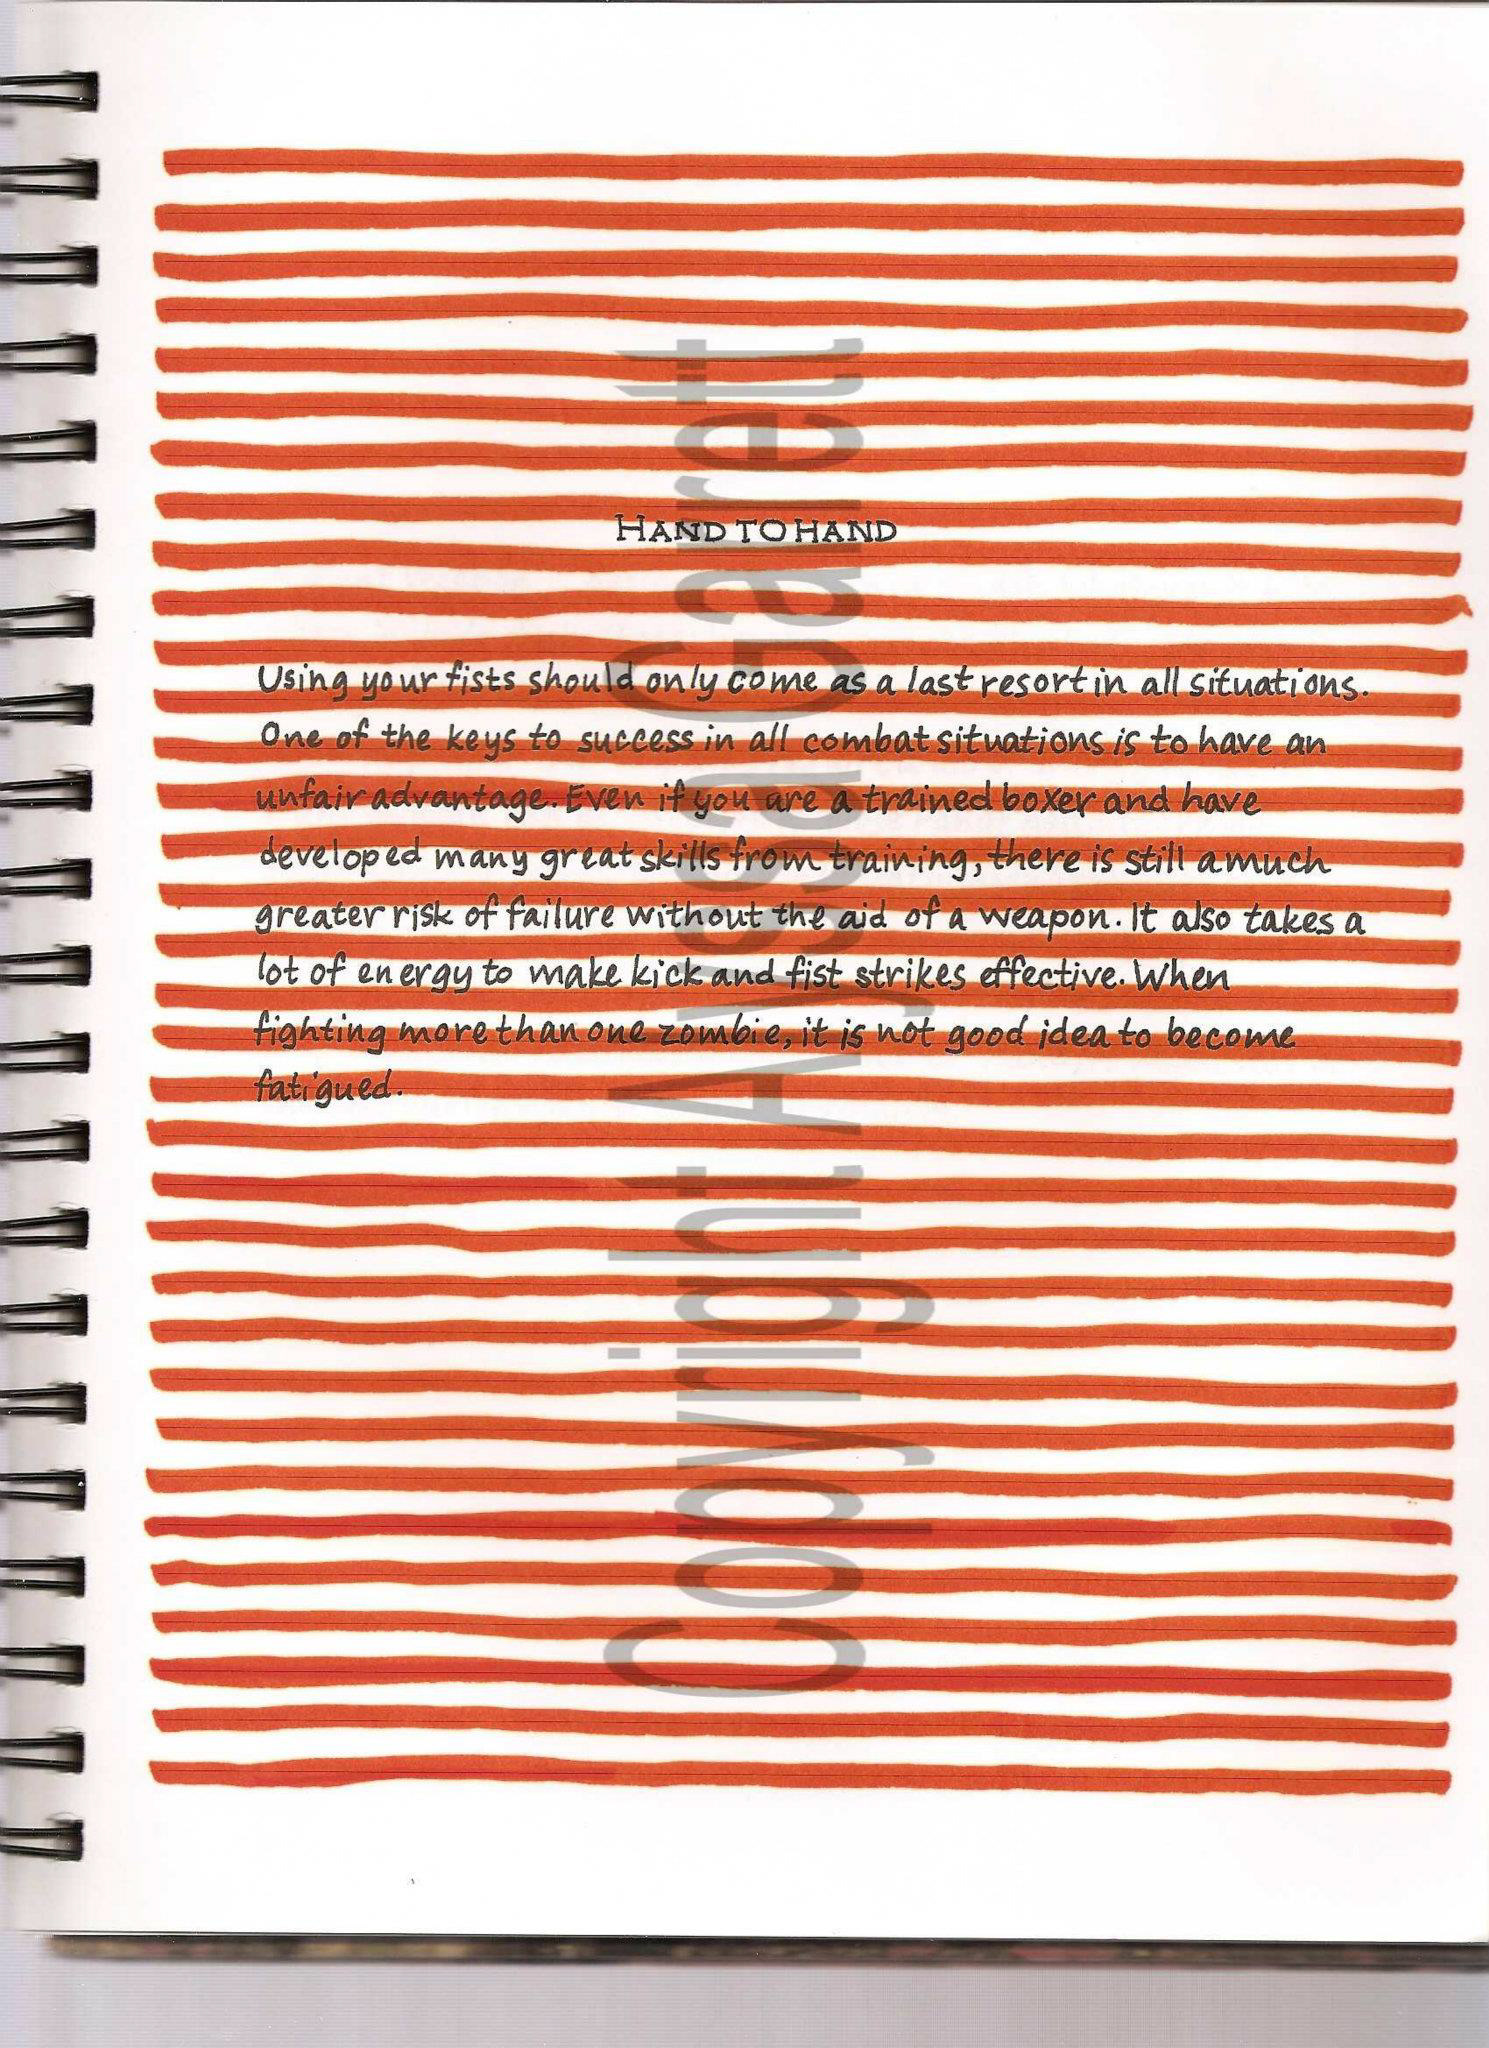 HAND TO HAND
Using your fists should only come as a last resort in all situations.
One of the keys to success in all combat situations is to have an
unfair advantage. Even if you are a trained boxer and have
developed many great skills from training, there is still a much
greater risk of failure without the aid of a weapon. It also takes a
lot of energy to make kick and fist strikes effective. When
fighting more than one zombie, it is not good idea to become
fatigued.
Copyright Alyssa Garret